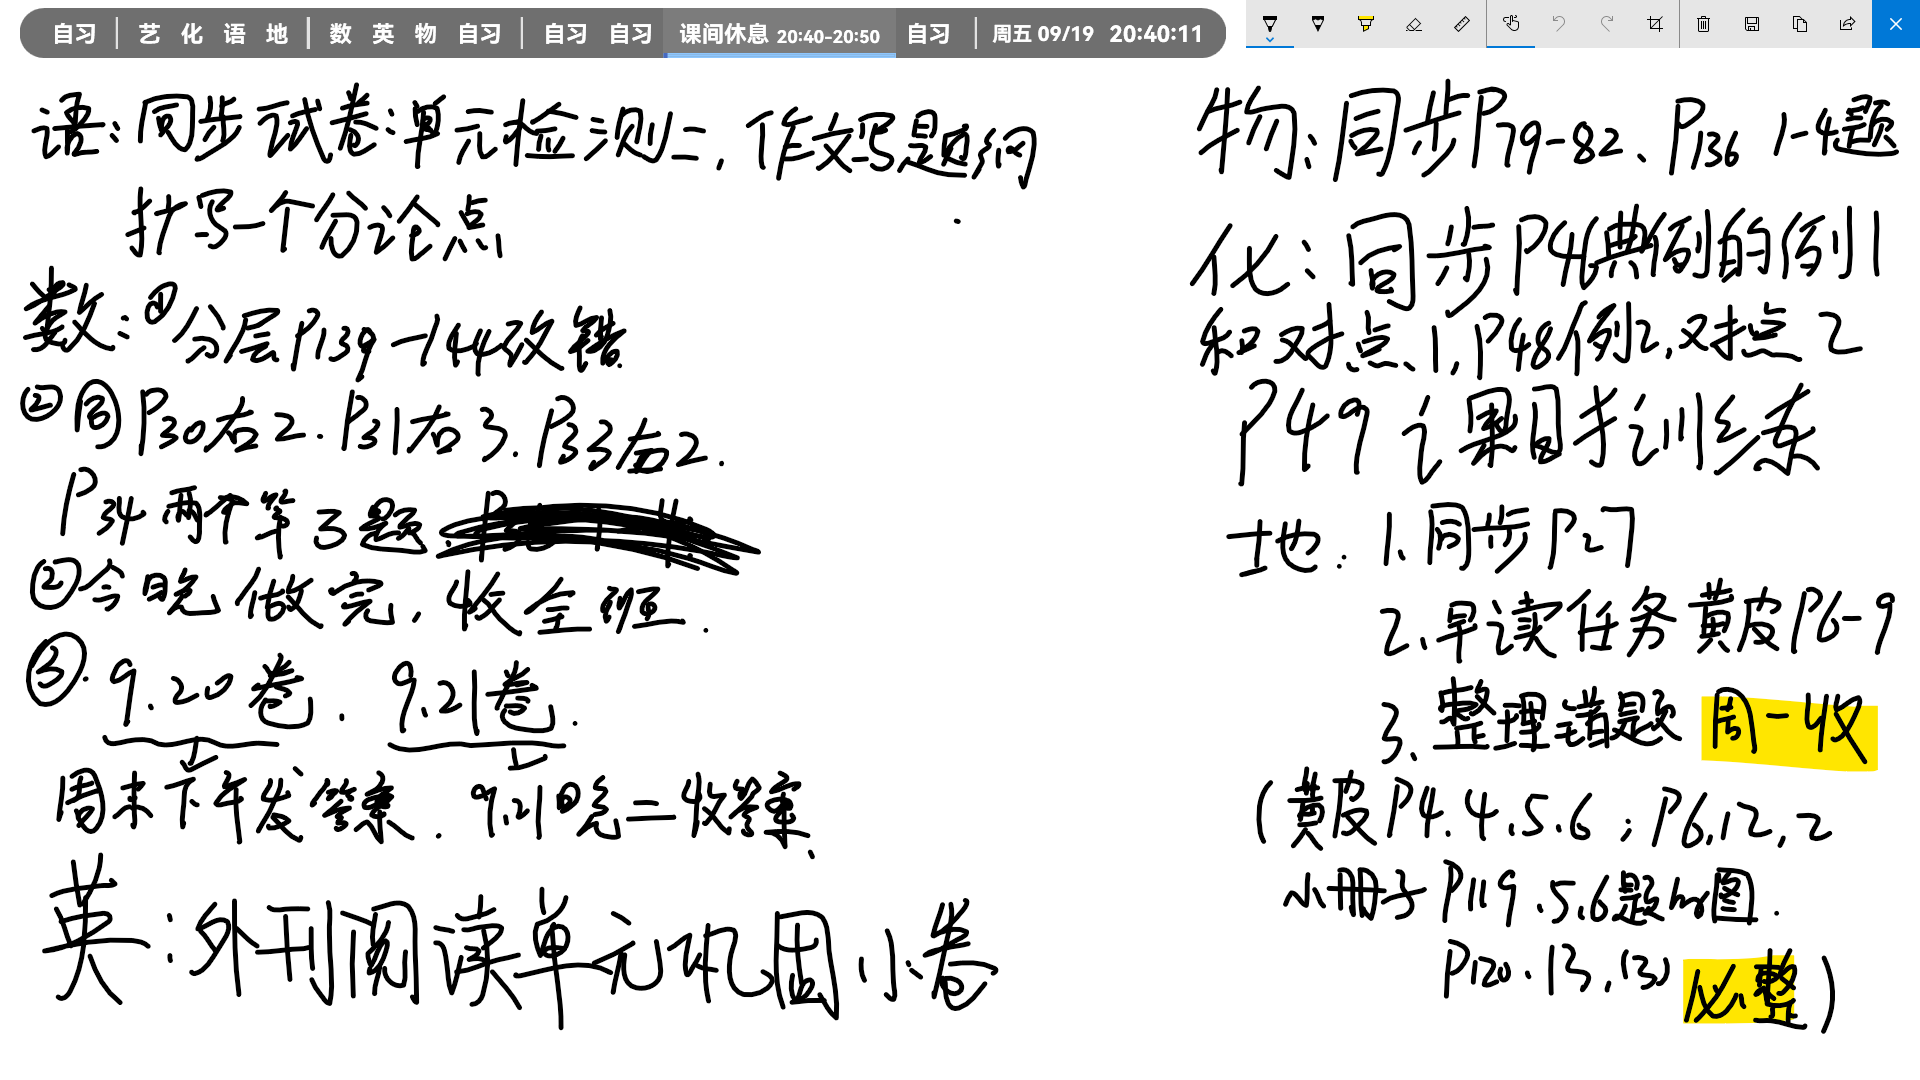 自习 | 艺 化 语 地 | 数 英 物 自习 | 自习 自习 课间休息 20:40-20:50 自习 | 周五 09/19 20:40:11
语:同步试卷:单元检测二,作文写题纲
抄写一个分论点
数:①分层P139-144改错
②同P30右2.P31右3.P33右2.
P34两个第3题
②今晚做完,收全班.
③.9.20卷.9.21卷.
周末下午发答案.9.21日晚二收答案.
英:外刊阅读单元巩固小卷
物:同步P79-82、P136 1-4题
化:同步P46典例的例1
和对点、1,P48例2,对点2
P49 课时训练
地:1、同步P27
2、早读任务黄皮P6-9
3、整理错题 周一收
(黄皮P4.4.5.6;P6.12,2
小册子P119.5.6题的图.
P120.13,(3) 必整)